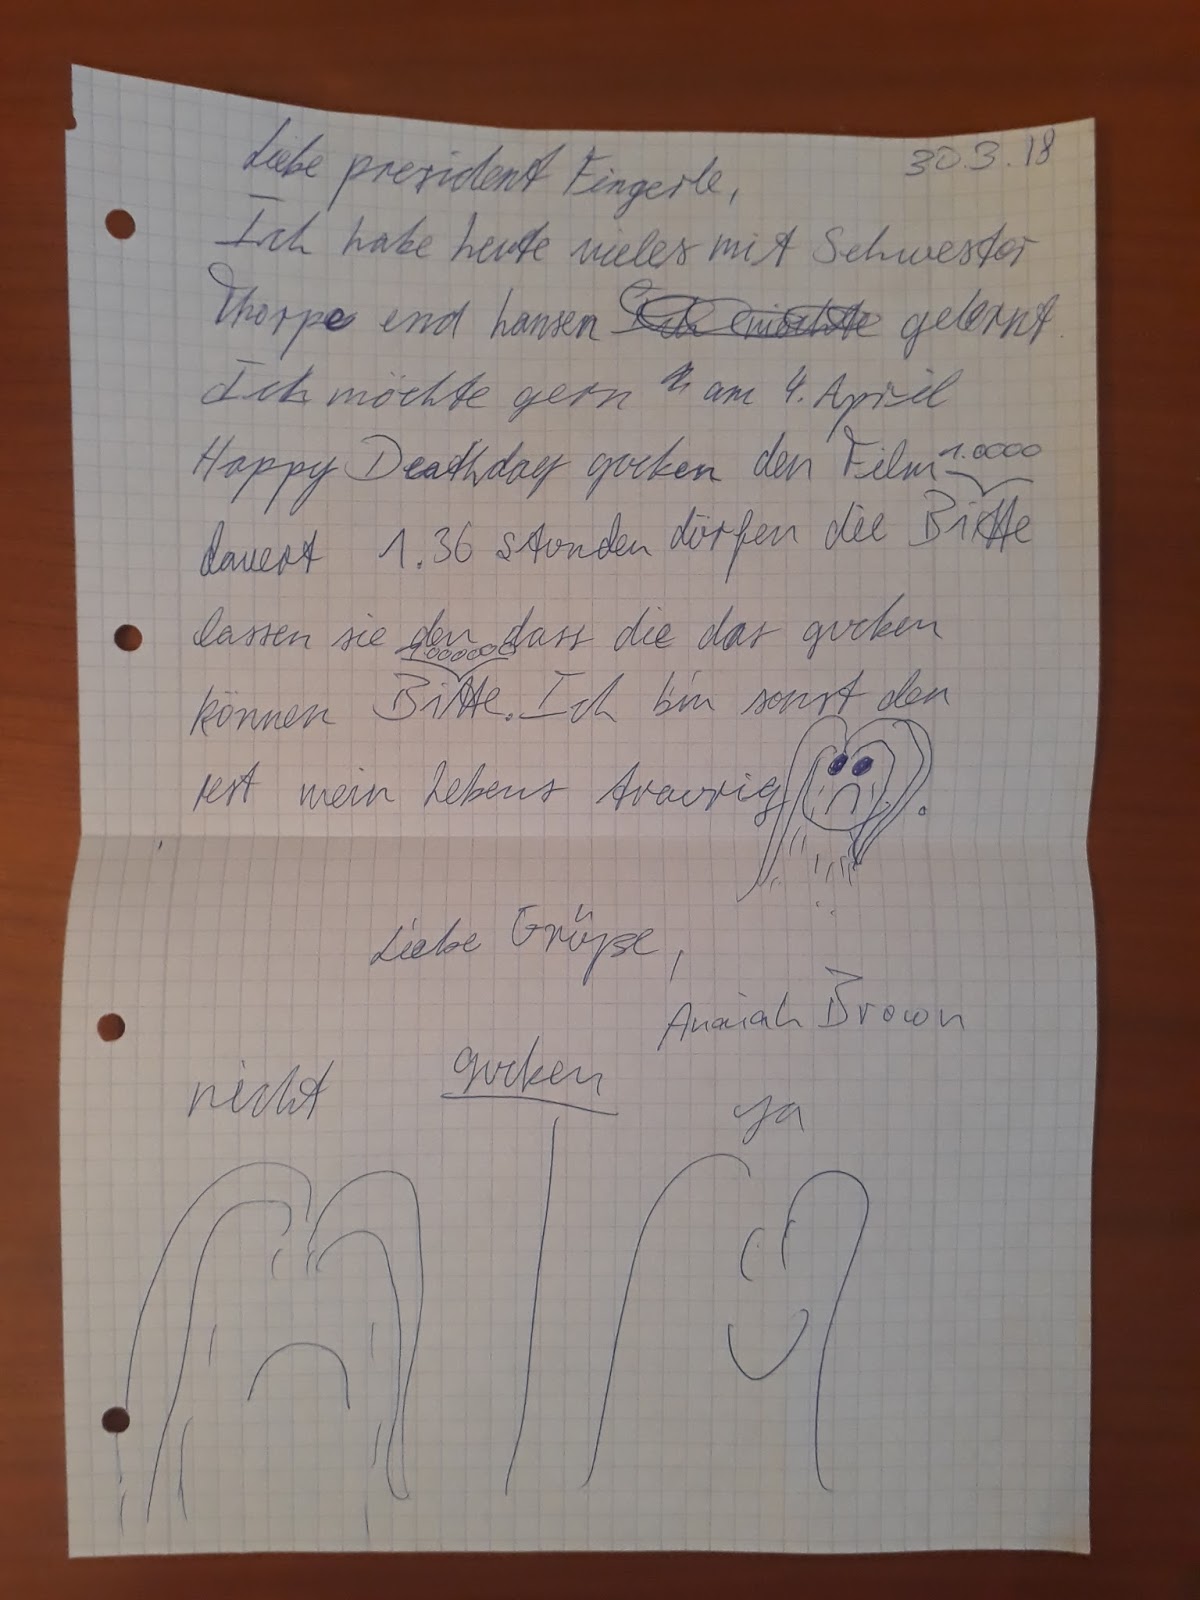 30.3.18
Liebe president Fingerle,
Ich habe heute vieles mit Schwester
Thorpe end hansen gelernt.
Ich möchte gern am 4. April
Happy Deathday gucken den Film
1.0000
dauert 1.36 stunden dürfen die Bitte
lassen sie den dass die das gucken
können Bitte. Ich bin sonst den
rest mein Lebens traurig .
Liebe Grüße,
Anaiah Brown
nicht gucken ja